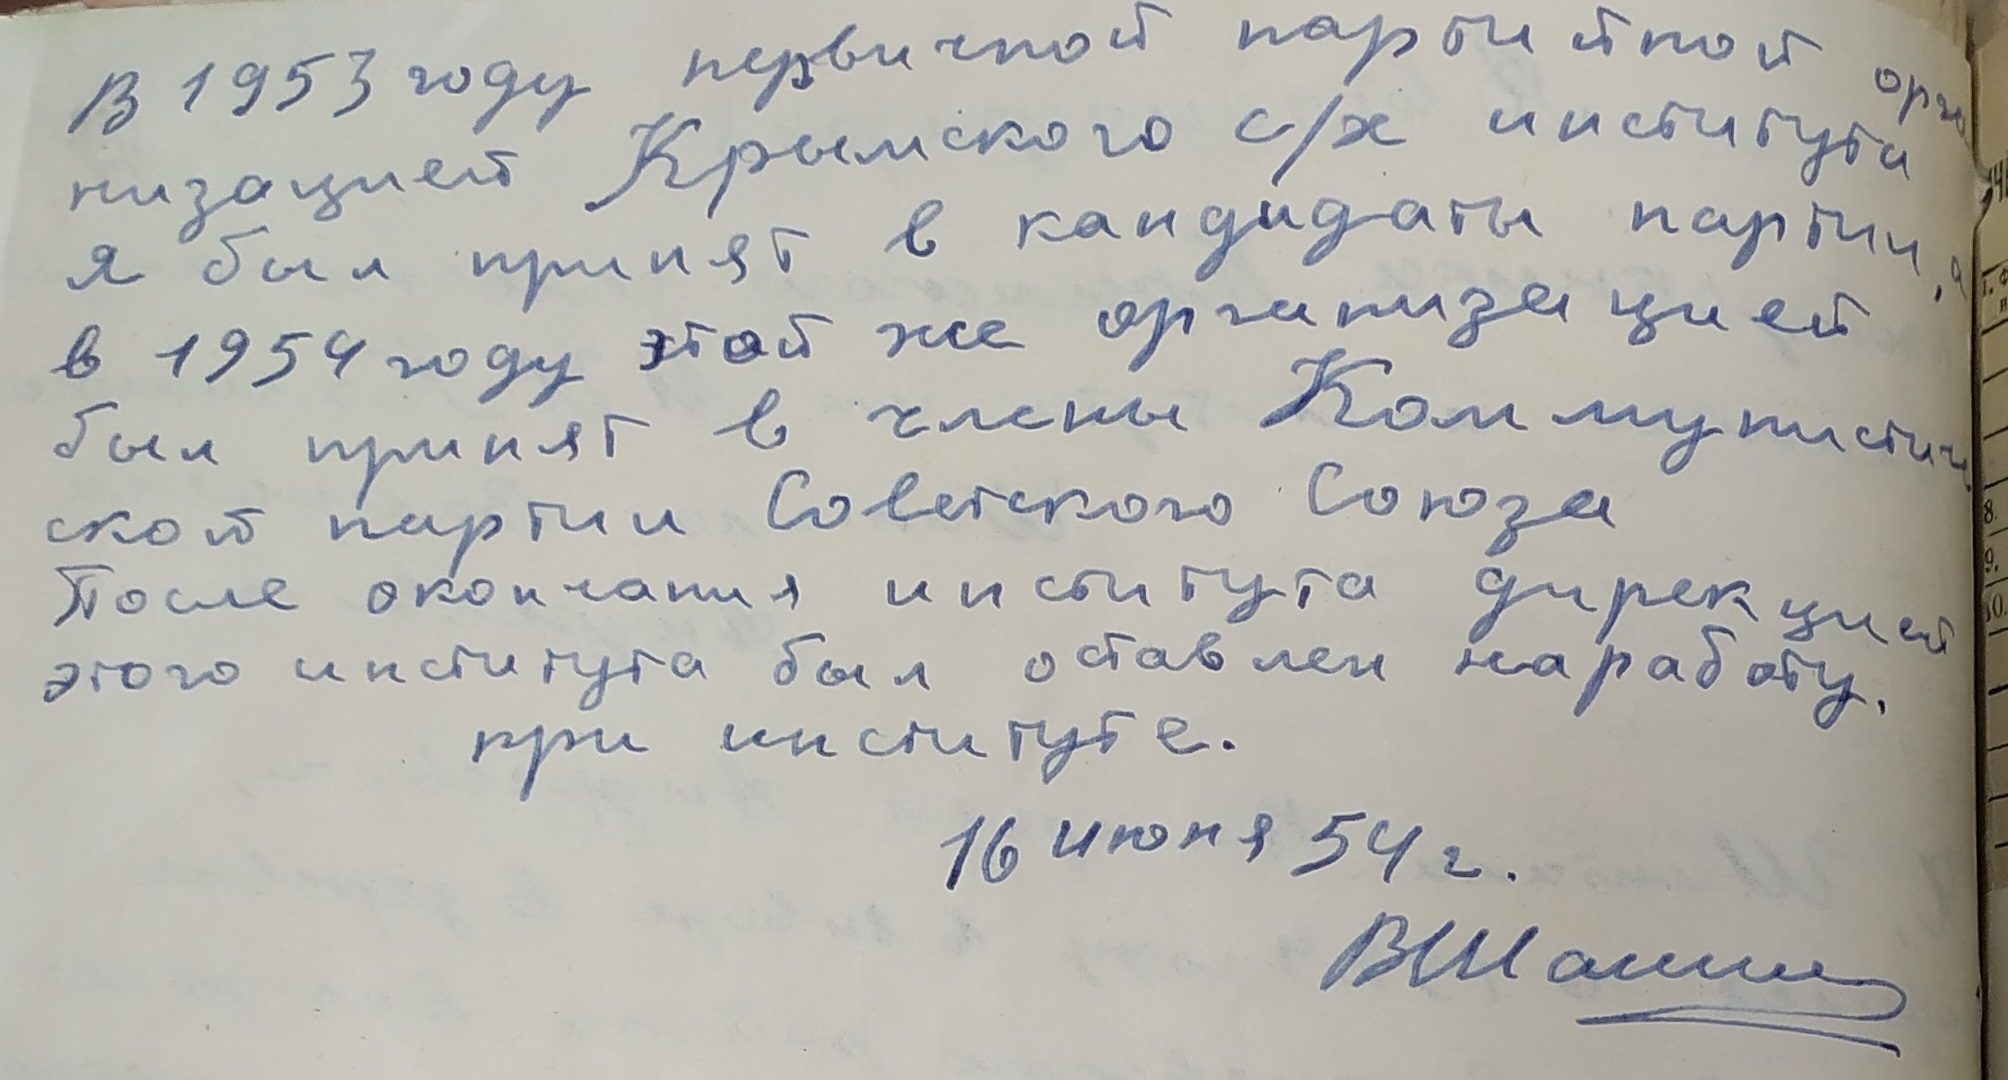 В 1953 году первичной партийной орга
низацией Крымского с/х института
я был принят в кандидаты партии, а
в 1954 году этой же организацией
был принят в члены Коммунистиче
ской партии Советского Союза
После окончания института дирекцией
этого института был оставлен на работу.
при институте.
16 июня 54 г.
8.
9.
10.